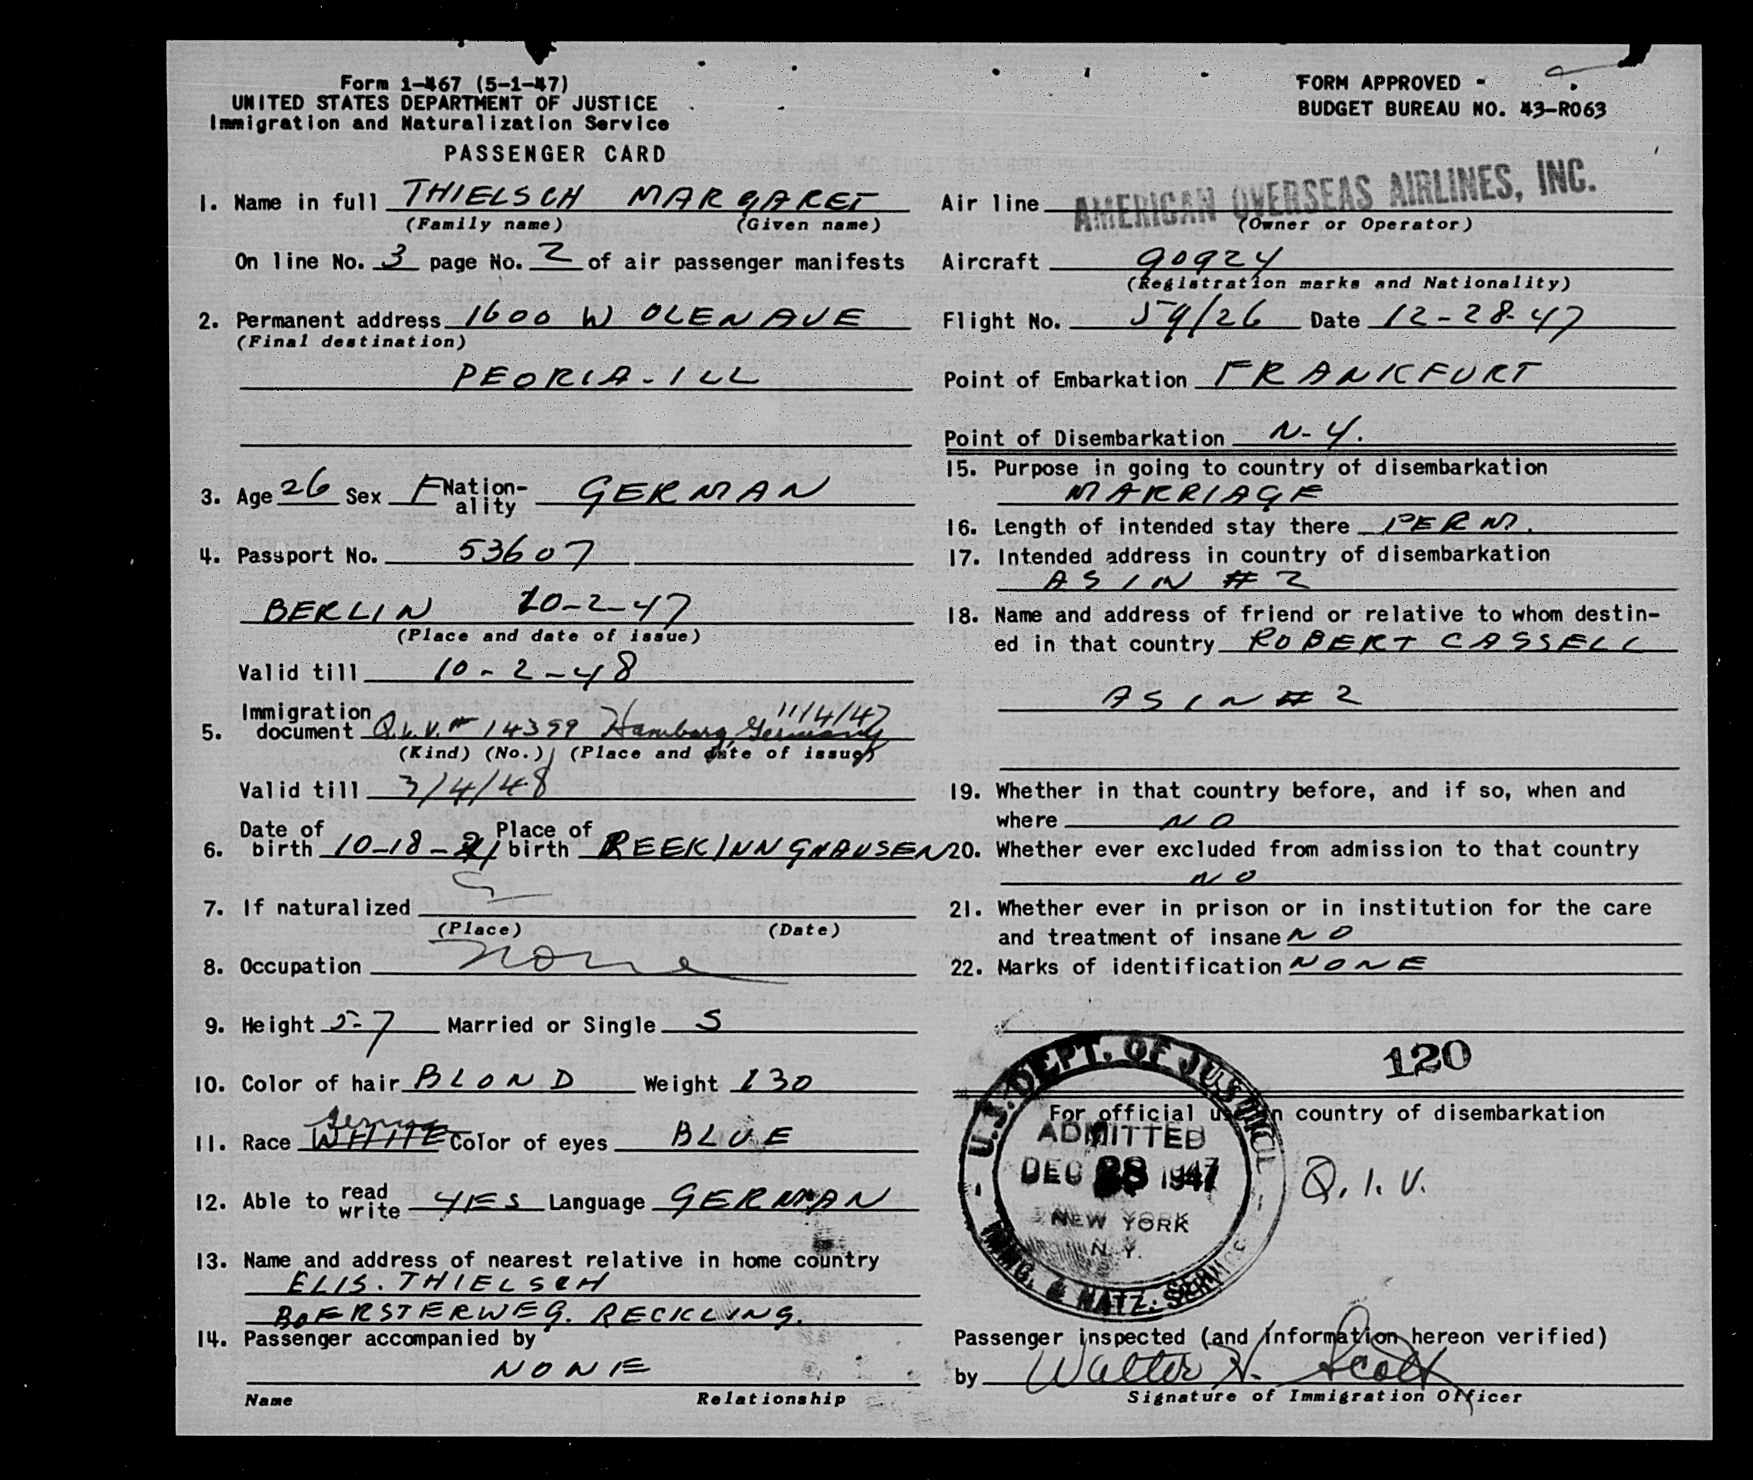 Form I-467 (5-1-47)
UNITED STATES DEPARTMENT OF JUSTICE
Immigration and Naturalization Service
PASSENGER CARD
FORM APPROVED -
BUDGET BUREAU NO. 43-R063
1. Name in full THIELSCH MARGARET
(Family name) (Given name)
On line No. 3 page No. 2 of air passenger manifests
2. Permanent address 1600 W OLEN AVE
(Final destination)
PEORIA - ILL
3. Age 26 Sex F Nation-ality GERMAN
4. Passport No. 53607
BERLIN 10-2-47
(Place and date of issue)
Valid till 10-2-48
5. Immigration document Q.I.V. # 14399 Hamburg, Germany 11/4/47
(Kind) (No.) (Place and date of issue)
Valid till 3/4/48
6. Date of birth 10-18-21 Place of birth REEKINNGHAUSEN
7. If naturalized
(Place) (Date)
8. Occupation none
9. Height 5-7 Married or Single S
10. Color of hair BLOND Weight 130
11. Race WHITE German Color of eyes BLUE
12. Able to read write YES Language GERMAN
13. Name and address of nearest relative in home country
ELIS. THIELSCH
BOERSTERWEG. RECKLING.
14. Passenger accompanied by
NONE
Name Relationship
Air line AMERICAN OVERSEAS AIRLINES, INC.
(Owner or Operator)
Aircraft 90924
(Registration marks and Nationality)
Flight No. 59/26 Date 12-28-47
Point of Embarkation FRANKFURT
Point of Disembarkation N-Y.
15. Purpose in going to country of disembarkation
MARRIAGE
16. Length of intended stay there PERM.
17. Intended address in country of disembarkation
AS IN # 2
18. Name and address of friend or relative to whom destin-
ed in that country ROBERT CASSELL
AS IN # 2
19. Whether in that country before, and if so, when and
where NO
20. Whether ever excluded from admission to that country
NO
21. Whether ever in prison or in institution for the care
and treatment of insane NO
22. Marks of identification NONE
120
For official use in country of disembarkation
U.S. DEPT. OF JUSTICE
ADMITTED
DEC 28 1947
NEW YORK
N.Y.
IMMG. & NATZ. SERVICE
Q.I.V.
Passenger inspected (and information hereon verified)
by Walter H. Scott
Signature of Immigration Officer